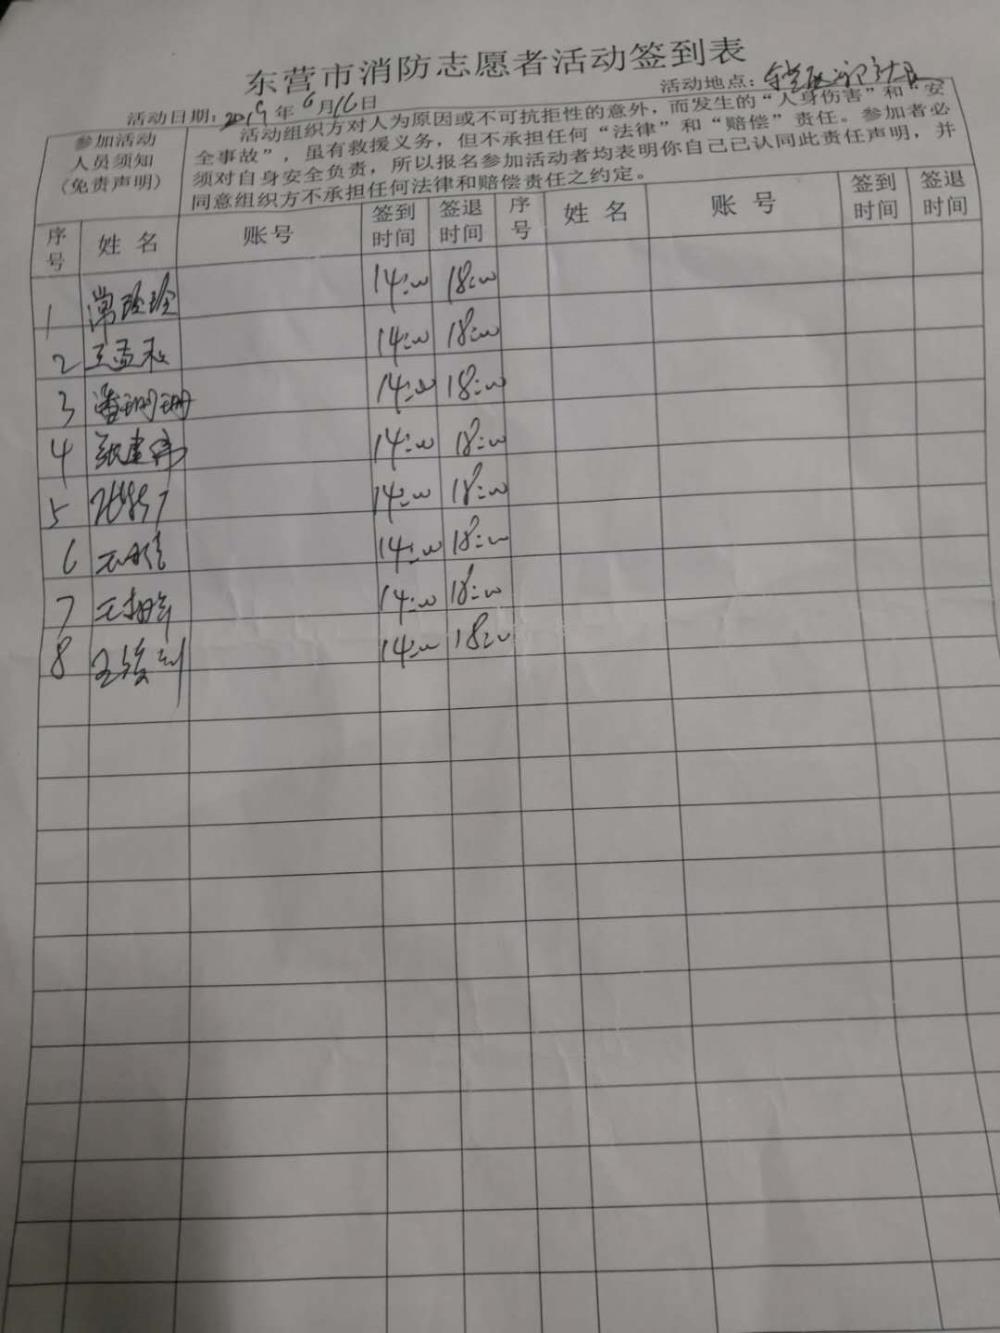 东营市消防志愿者活动签到表
活动日期：2019年6月16日 活动地点：
参加活动
人员须知
(免责声明)
活动组织方对人为原因或不可抗拒性的意外，而发生的“人身伤害”和“安
全事故”，虽有救援义务，但不承担任何“法律”和“赔偿”责任。参加者必
须对自身安全负责，所以报名参加活动者均表明你自己已认同此责任声明，并
同意组织方不承担任何法律和赔偿责任之约定。
序号 姓名 账号 签到时间 签退时间 序号 姓名 账号 签到时间 签退时间
1 常玲玲 14:00 18:00
2 王孟 14:00 18:00
3 潘珊珊 14:00 18:00
4 张建伟 14:00 18:00
5 14:00 18:00
6 14:00 18:00
7 14:00 18:00
8 王俊 14:00 18:00